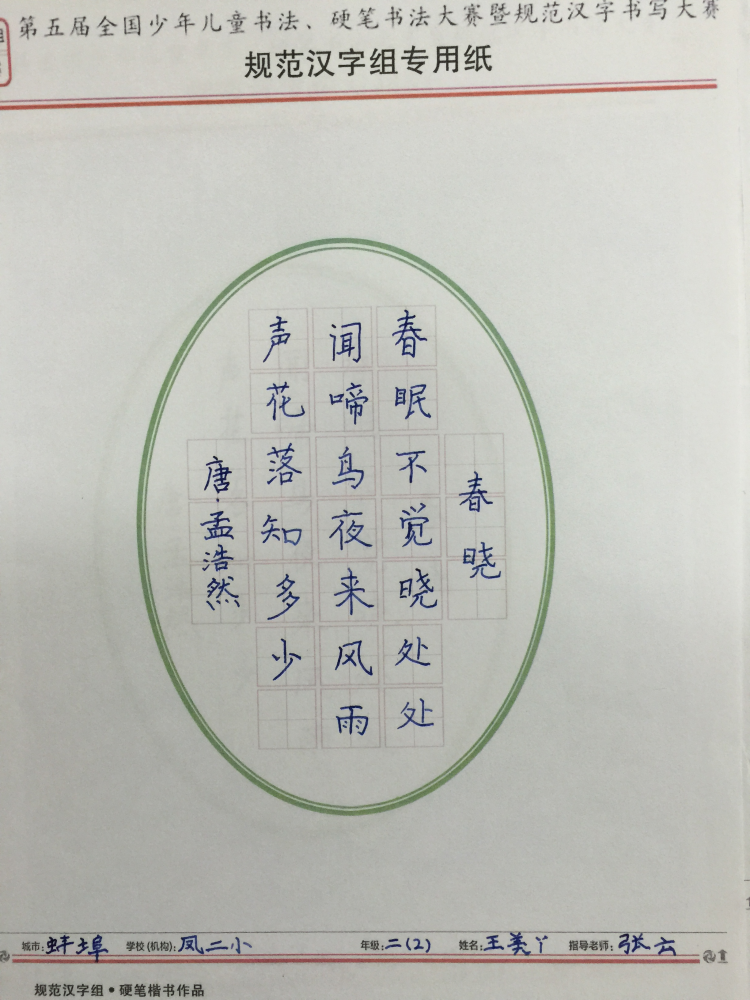 第五届全国少年儿童书法、硬笔书法大赛暨规范汉字书写大赛
规范汉字组专用纸
春晓
春眠不觉晓处处
闻啼鸟夜来风雨
声花落知多少
唐·孟浩然
城市:蚌埠 学校(机构):凤二小 年级:二(2) 姓名:王美丫 指导老师:张云
规范汉字组·硬笔楷书作品